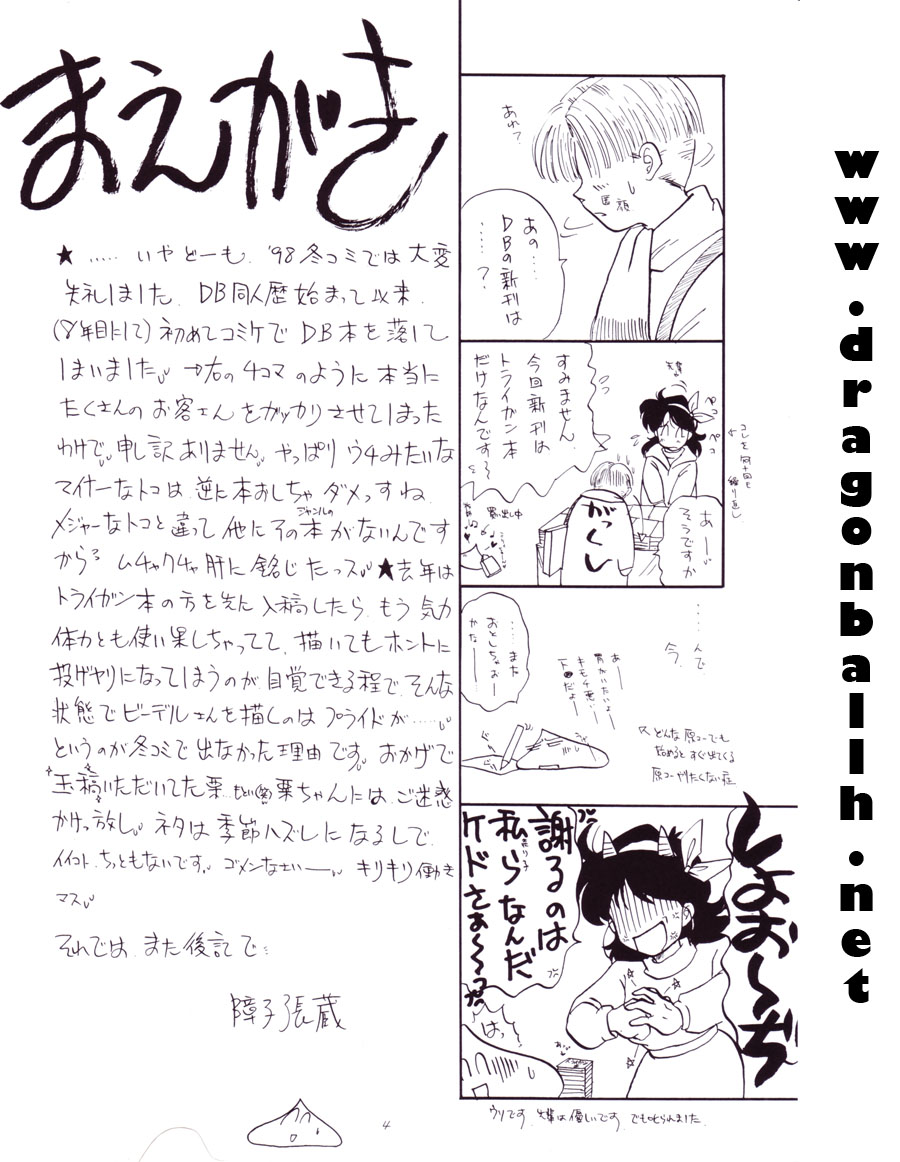 まえがき
★ ..... いやどーも、'98冬コミでは大変
失礼しました、DB同人歴始まって以来、
(8年目にして)初めてコミケでDB本を落して
しまいました。→右の4コマのように本当に
たくさんのお客さんをガッカリさせてしまった
わけで、申し訳ありません。やっぱりウチみたいな
マイナーなトコは、逆に本おしちゃダメっすね、
メジャーなトコと違って他にそのジャンルの本がないんです
から。ムチャクチャ肝に銘じたっス。★去年は
トライガン本の方を先に入稿したら、もう気力
体力とも使い果しちゃってて、描いてもホントに
投げヤリになってしまうのが自覚できる程で、そんな
状態でビーデルさんを描くのはプライドが......。
というのが冬コミで出なかった理由です。おかげで
玉稿いただいてた栗 栗ちゃんには、ご迷惑
かけっ放し。ネタは季節ハズレになるしで、
イイコト、ちっともないです。ゴメンなさいー。キリキリ働き
マス。
それでは、また後記で
障子張蔵
4
あれ?
あの......
DBの新刊は
......?
すみません
今回新刊は
トライガン本
だけなんです〜
ペコ
ペコ
コレを何十回も
繰り返し
あ——
そうですか
がっくし
買い出し中
......んで
今、
......また
おとしちゃおー
かなー
あー
肩がいたいよー
キモチ悪いー
だよー
↖どんな原コーでも
始めるとすぐ出てくる
原コーやりたくない症
しょお〜ぢ
謝るのは
私らなんだ
売り子
ケドさぁ〜〜っ
はっ
ウソです。先輩は優しいです。でも叱られました。
www.dragonballh.net